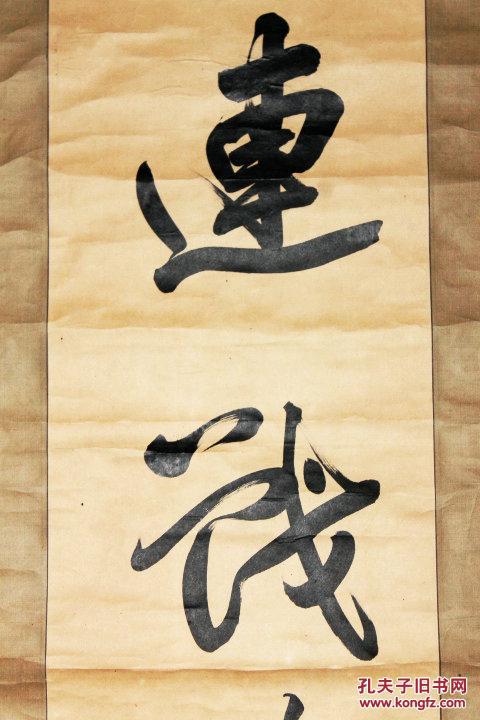 連
孔夫子旧书网
www.kongfz.com